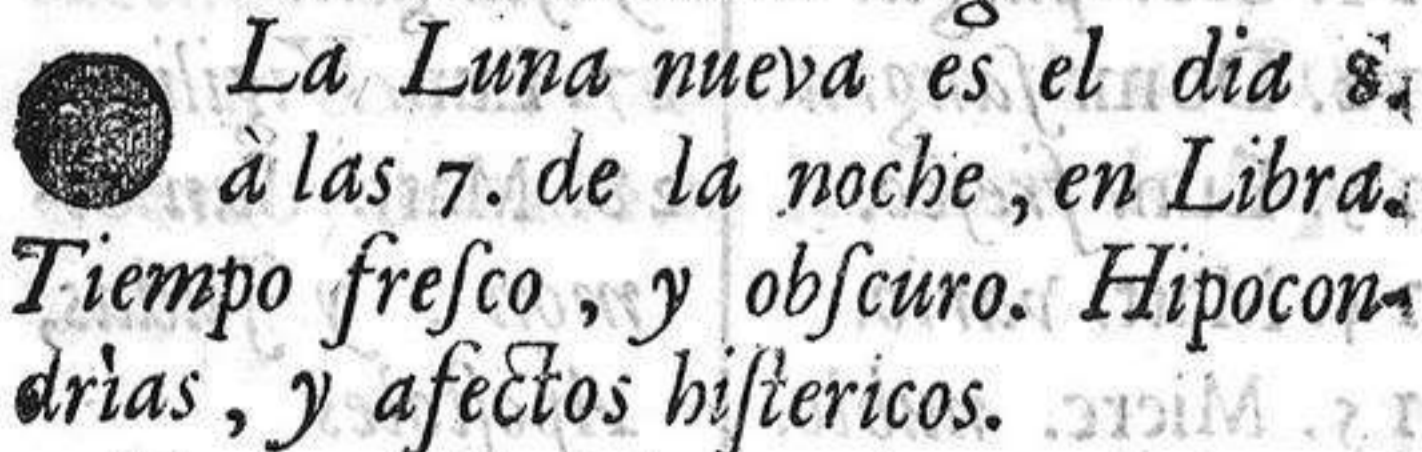 La Luna nueva es el dia 8.
à las 7. de la noche, en Libra.
Tiempo freſco, y obſcuro. Hipocon-
drìas, y afectos hiſtericos.